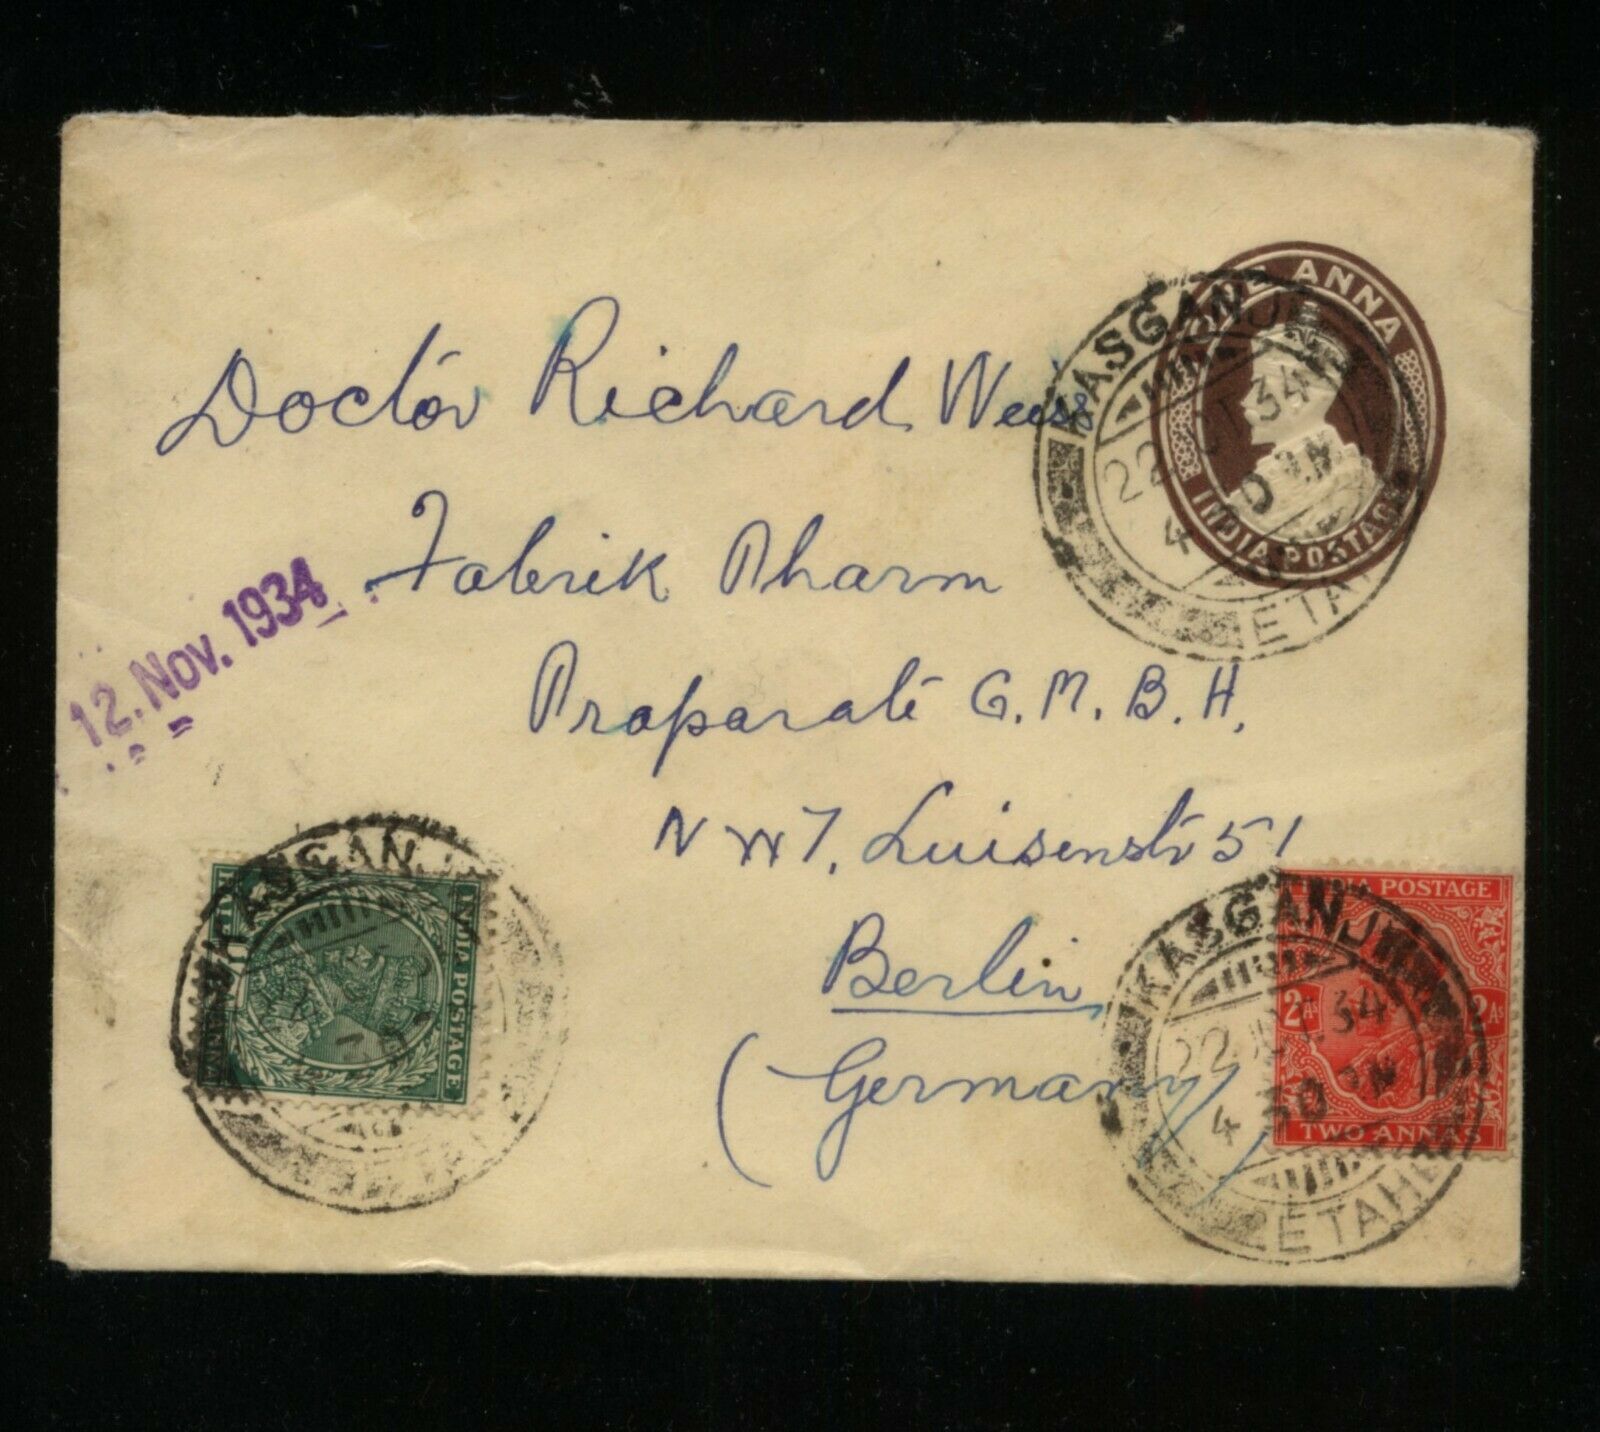 ONE ANNA
INDIA POSTAGE
KASGANJ
22 34
4 30 PM
ETAH
Doctor Richard Weiss
Fabrik Pharm
Praparate G.M.B.H.
NW7, Luisenstr 51
Berlin
(Germany)
12. Nov. 1934
KASGANJ
INDIA POSTAGE
HALF ANNA
KASGANJ
22 34
4 30 PM
ETAH
INDIA POSTAGE
2 As
2 As
TWO ANNAS